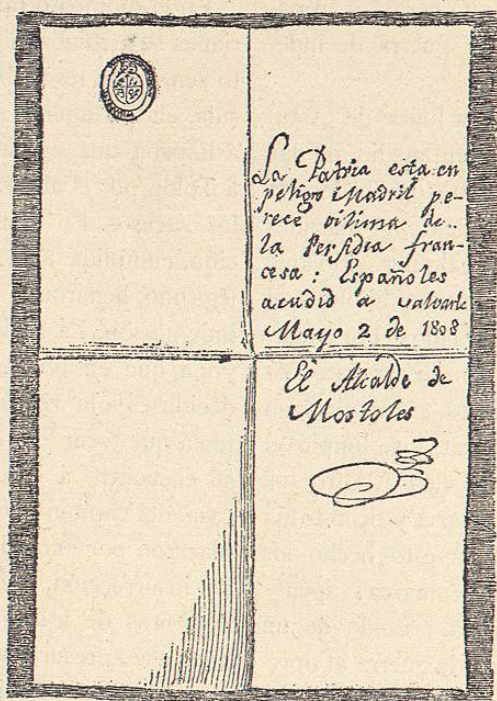 La Patria esta en
peligro Madril pe-
rece vitima de..
la Perfidia fran-
cesa : Españoles
acudid a salvarle
Mayo 2 de 1808
El Alcalde de
Mostoles